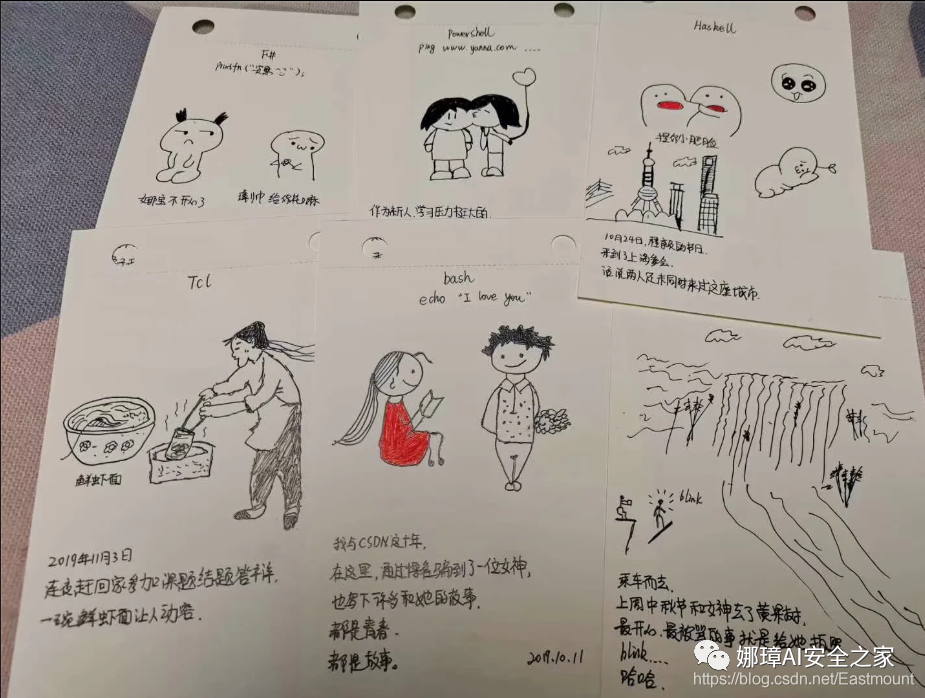 F#
printfn("安果~");
娜宝不开心了
璋巾给你把脉
Powershell
ping www.yanna.com ....
作为新人,学习压力挺大的.
Haskell
捏你小肥脸
10月24日,程序员的节日.
来到了上海参会.
话说两人还未同时来过这座城市.
Tcl
鲜虾面
2019年11月3日
连夜赶回家参加课题结题答辩,
一碗鲜虾面让人动容.
bash
echo "I love you"
我与CSDN这十年,
在这里,通过博客骗到了一位女神,
也写下许多和她的故事.
都是青春.
都是故事。
2019.10.11
blink
乘车而去.
上周中秋节和女神去了黄果树,
最开心,最被笑的事就是给她拍照
blink....
哈哈.
娜璋AI安全之家
https://blog.csdn.net/Eastmount